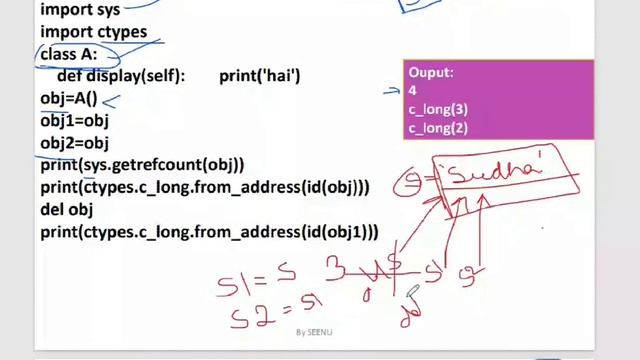 import sys
import ctypes
class A:
def display(self): print('hai')
obj=A()
obj1=obj
obj2=obj
print(sys.getrefcount(obj))
print(ctypes.c_long.from_address(id(obj)))
del obj
print(ctypes.c_long.from_address(id(obj1)))
Ouput:
4
c_long(3)
c_long(2)
S = 'Sudha'
S1 = S
S2 = S1
3
S
S1
S2
By SEENU